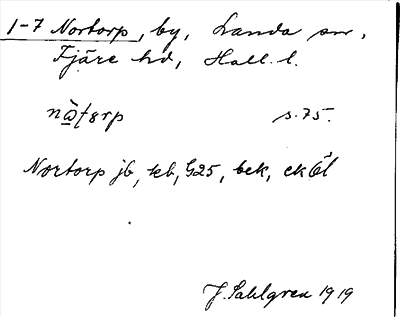 1-7 Nortorp, by, Landa sn,
Fjäre hd, Hall. l.
s. 75.
Nortorp jb, kb, G25, bek, ek
J. Sahlgren 1919